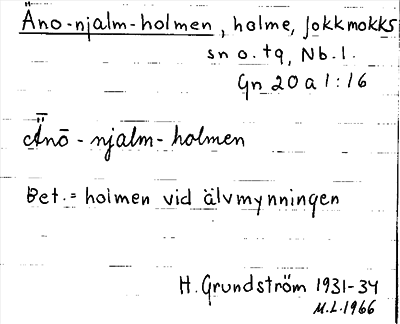 Äno-njalm-holmen, holme, Jokkmokks
sn o. tq, Nb. l.
Gn 20 a 1:16
Ǟnō - njalm- holmen
Bet. = holmen vid älvmynningen
H. Grundström 1931-34
M.L. 1966